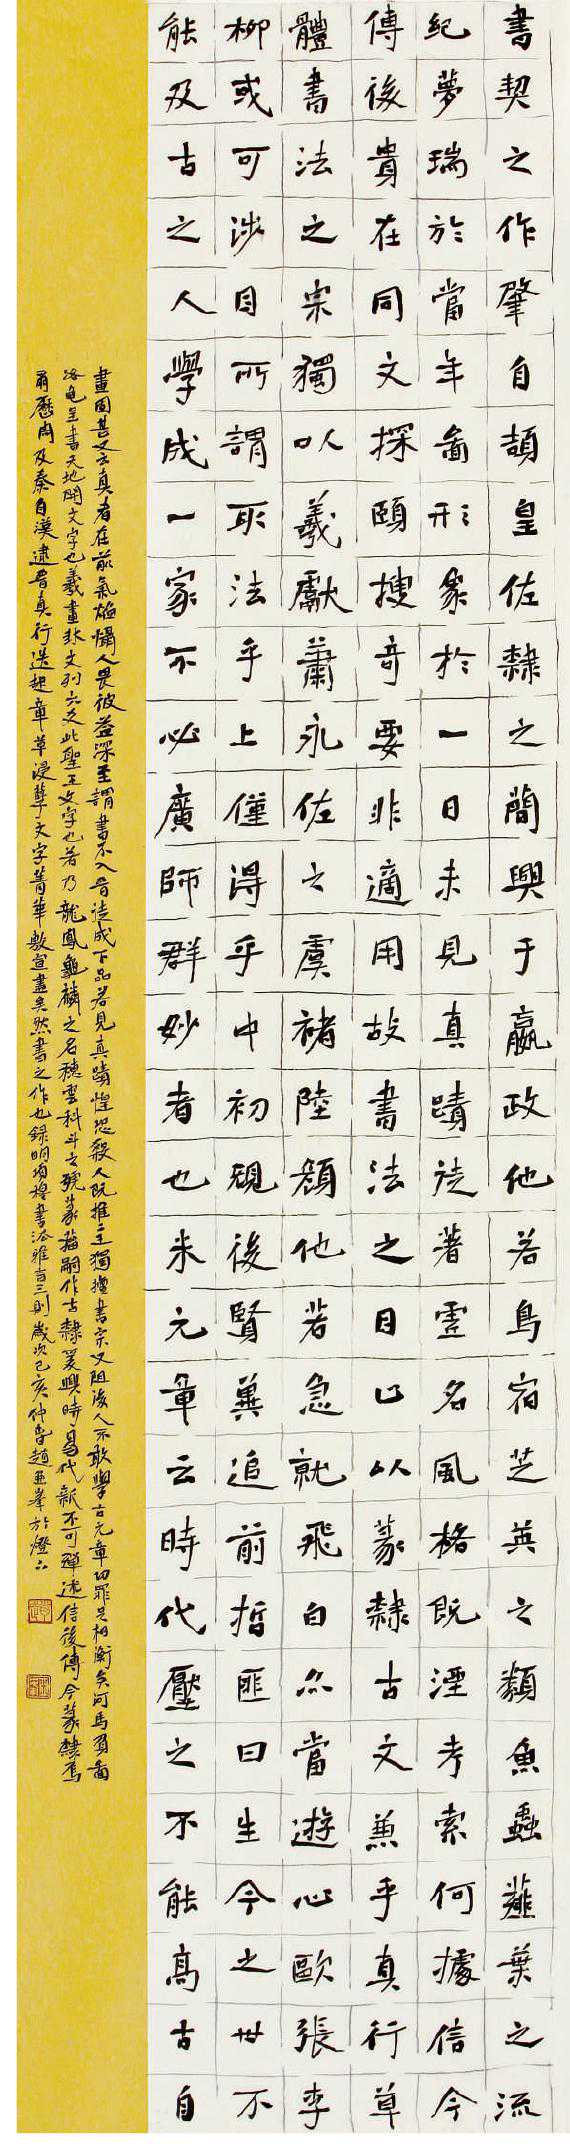 書契之作肇自頡皇佐隸之簡興于嬴政他若鳥宿芝英之類魚蟲薤葉之流
紀夢瑞於當年圖形象於一日未見真蹟徒著虛名風格既湮考索何據信今
傳後貴在同文探賾搜奇要非適用故書法之目止以篆隸古文兼乎真行草
體書法之宗獨以羲獻蕭永佐之虞褚陸顏他若急就飛白亦當遊心歐張李
柳或可涉目所謂取法乎上僅得乎中初規後賢冀追前哲匪曰生今之世不
能及古之人學成一家不必廣師群妙者也米元章云時代壓之不能高古自
畫固甚又云真者在前氣焰懾人畏彼益深至謂書不入晉徒成下品若見真蹟惶恐殺人既推二王獨擅書宗又阻後人不敢學古元章功罪足相衡矣河馬負圖
洛龜呈書天地開文字也羲畫卦文列六爻此聖王文字也若乃龍鳳龜麟之名穗雲科斗之號篆籀嗣作古隸爰興時易代新不可殫述信後傳今篆隸焉
爾歷周及秦自漢逮晉真行迭起章草浸孳文字菁華敷宣盡矣然書之作也錄明項穆書法雅言三則歲次己亥仲春趙亚峯於燈下